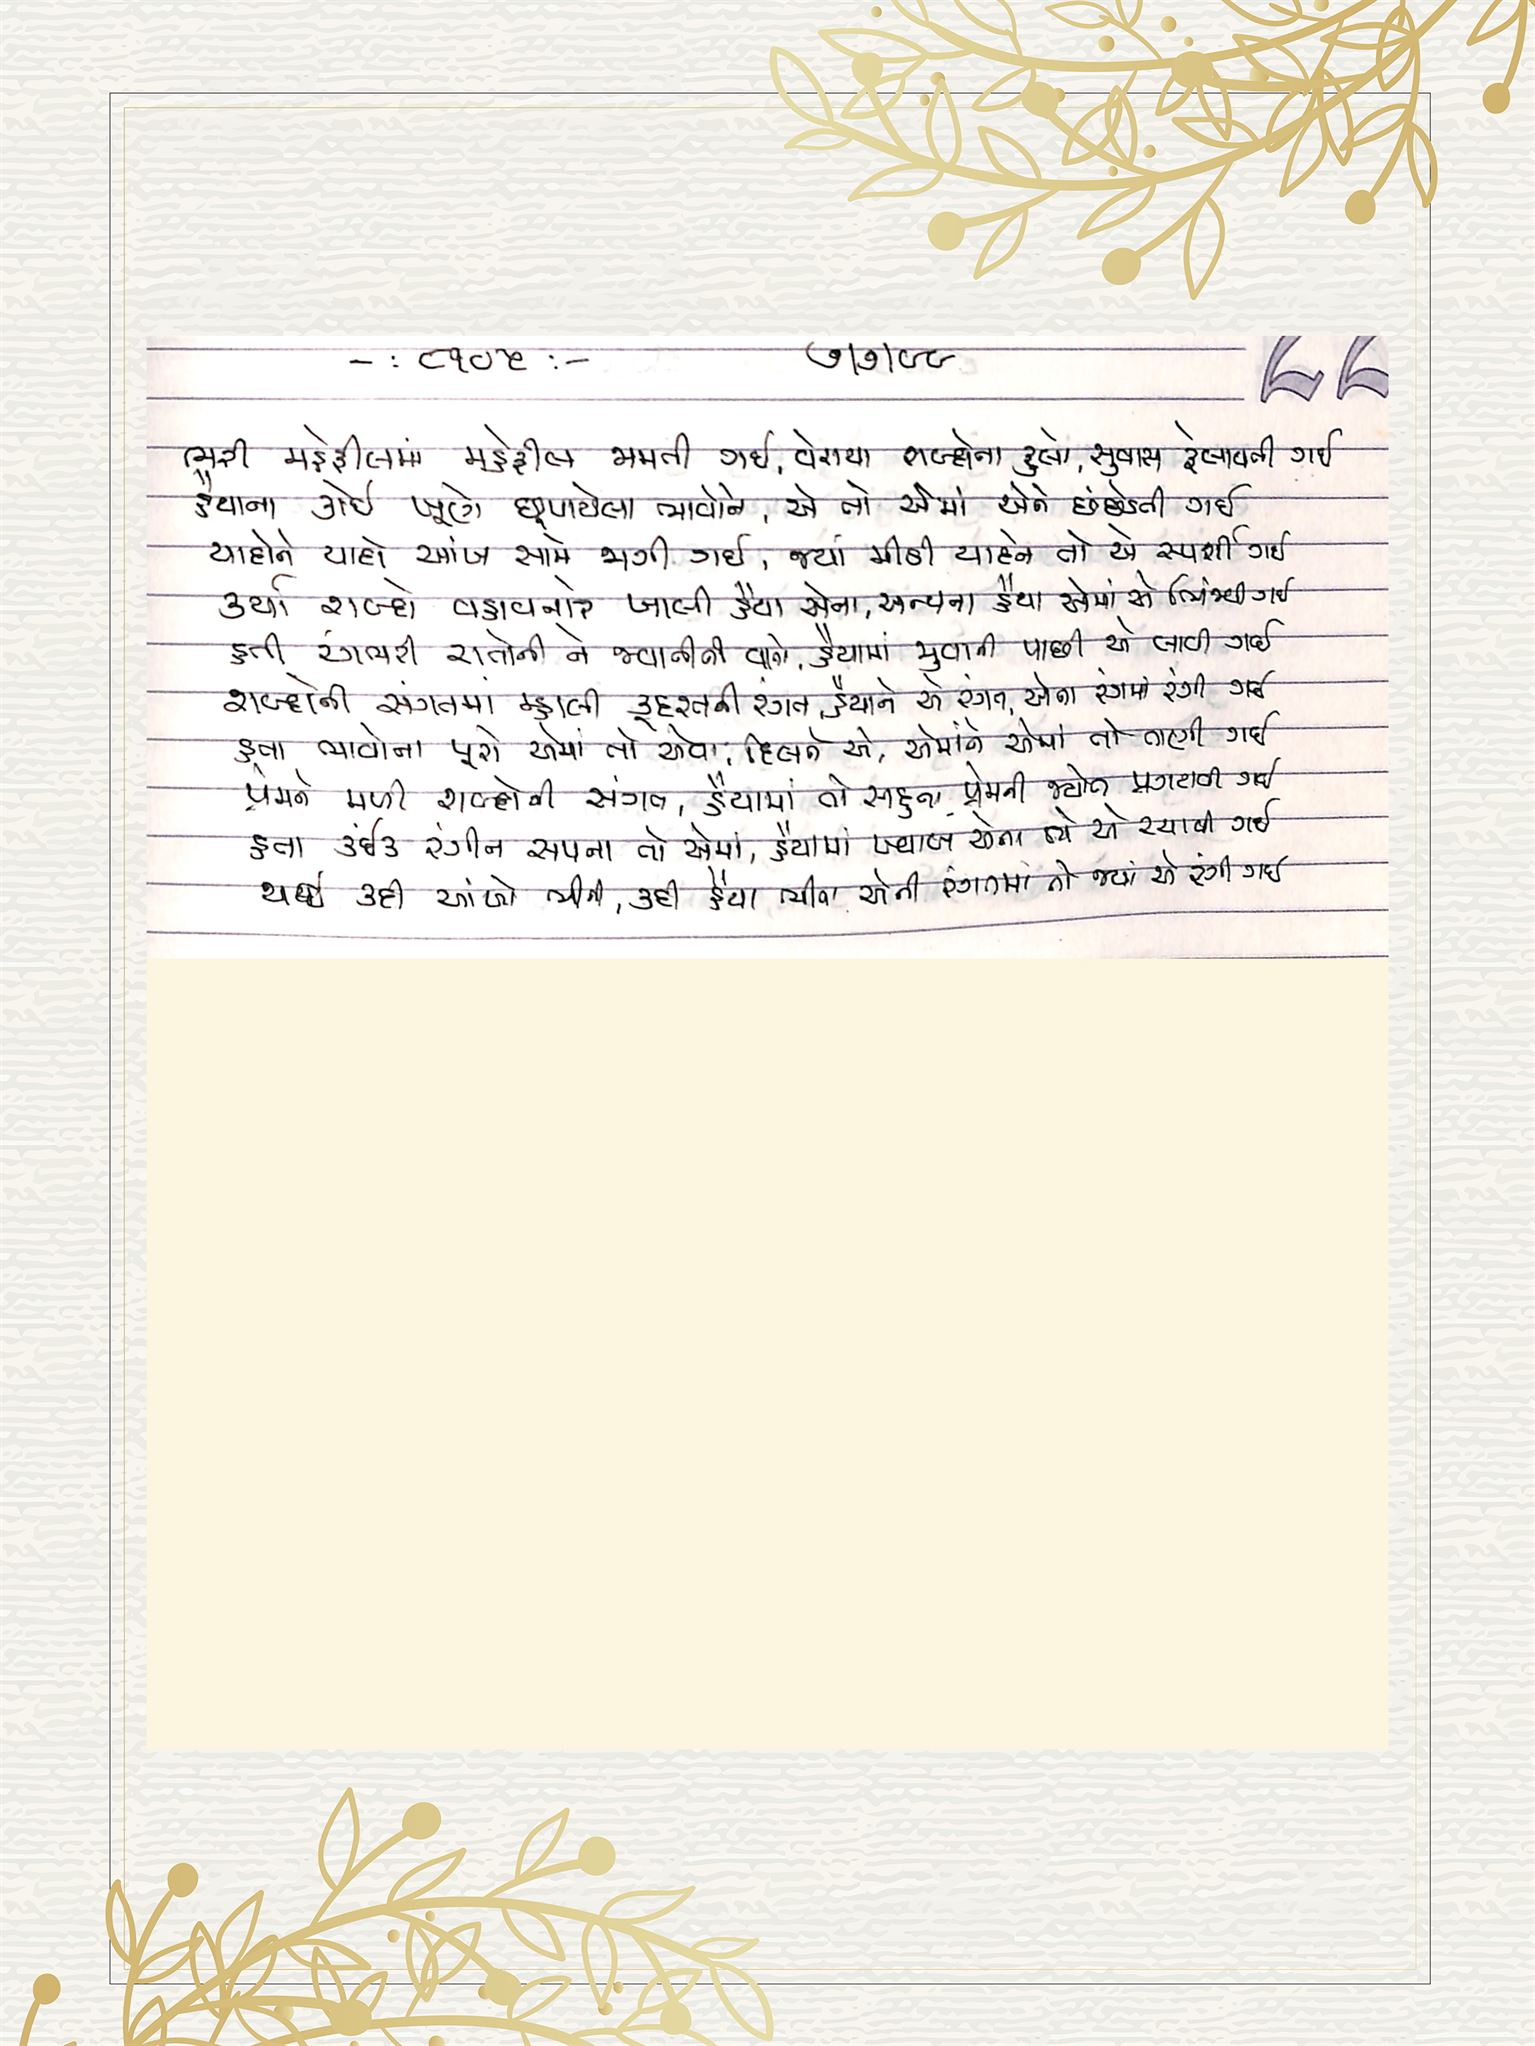 -: ૮૧૦૫ :- ૭|૭|૯૯
ભરી મહેફીલમાં મહેફીલ જામતી ગઈ, વેરાયા શબ્દોના ફુલો, સુવાસ ફેલાવતી ગઈ
હૈયાના કોઈ ખૂણે છૂપાયેલા ભાવોને, એ તો એમાં એને છંછેડતી ગઈ
યાદોને યાદો આંખ સામે જાગી ગઈ, જ્યાં મીઠી યાદોને તો એ સ્પર્શી ગઈ
કર્યા શબ્દો વહાવનારે ખાલી હૈયા એના, અન્યના હૈયા એમાં એ ભિંજવી ગઈ
હતી રંગભરી રાતોની ને જવાનીની વાતો, હૈયામાં જુવાની પાછી એ લાવી ગઈ
શબ્દોની સંગતમાં મ્હાલી કુદરતની રંગત, હૈયાને એ રંગત, એના રંગમાં રંગી ગઈ
હતા ભાવોના પૂરો એમાં તો એવા, દિલને એ, એમાંને એમાં તો તાણી ગઈ
પ્રેમને મળી શબ્દોની સંગત, હૈયામાં તો સહુના પ્રેમની જ્યોત પ્રગટાવી ગઈ
હતા કંઈક રંગીન સપના તો એમાં, હૈયામાં ખ્વાબ એના એ રચાવી ગઈ
થઈ કદી આંખો ભીની, કદી હૈયા ભીના એની રંગતમાં તો જ્યાં એ રંગી ગઈ